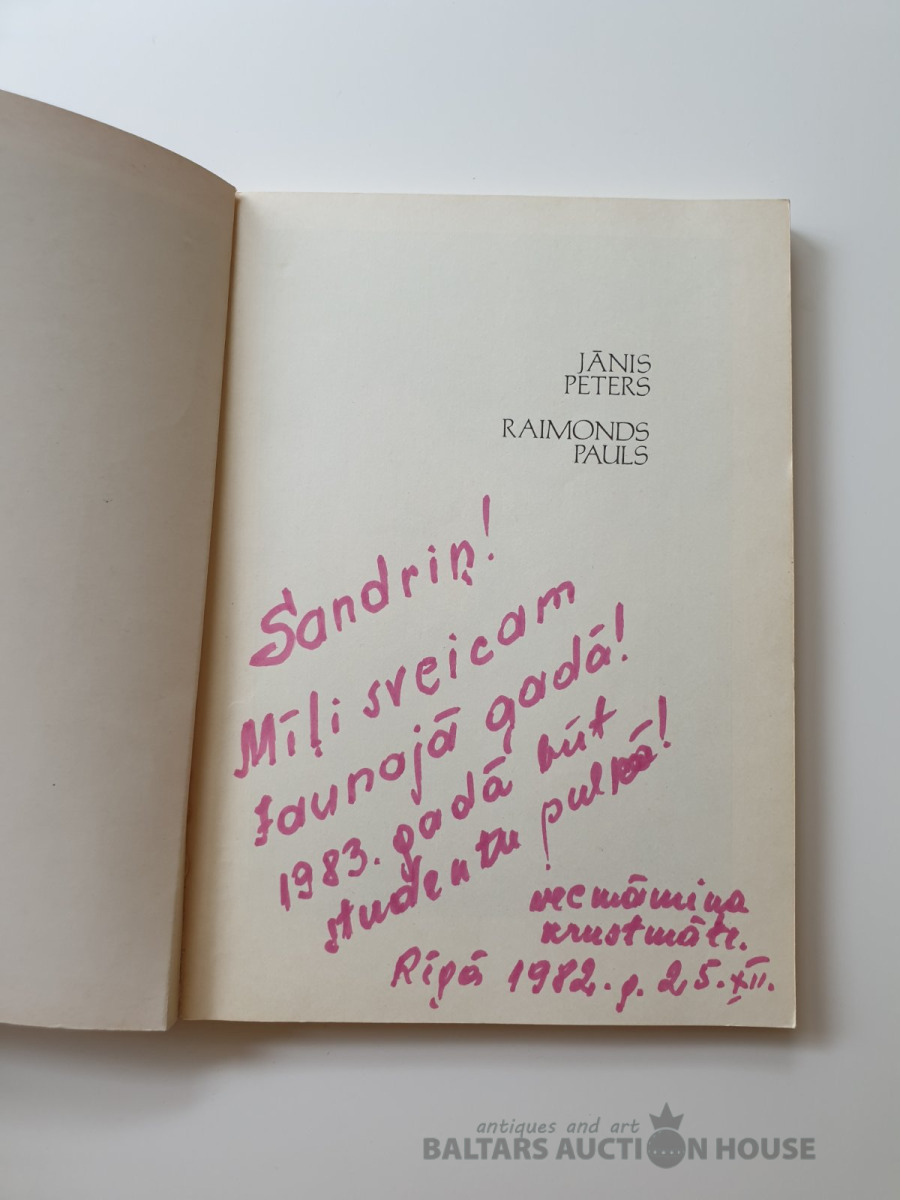 JĀNIS
PETERS
RAIMONDS
PAULS
Sandriņ!
Mīļi sveicam
Jaunajā gadā!
1983. gadā būt
studentu pulkā!
vecmāmiņa
krustmāte.
Rīgā 1982. g. 25. XII.
antiques and art
BALTARS AUCTION HOUSE